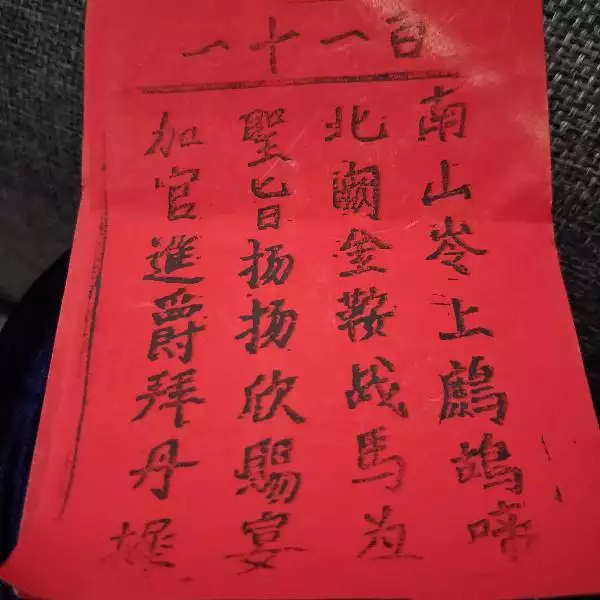 百一十一
南山岺上鷓鴣啼
北闕金鞍战馬为
聖旨扬扬欣賜宴
加官進爵拜丹墀